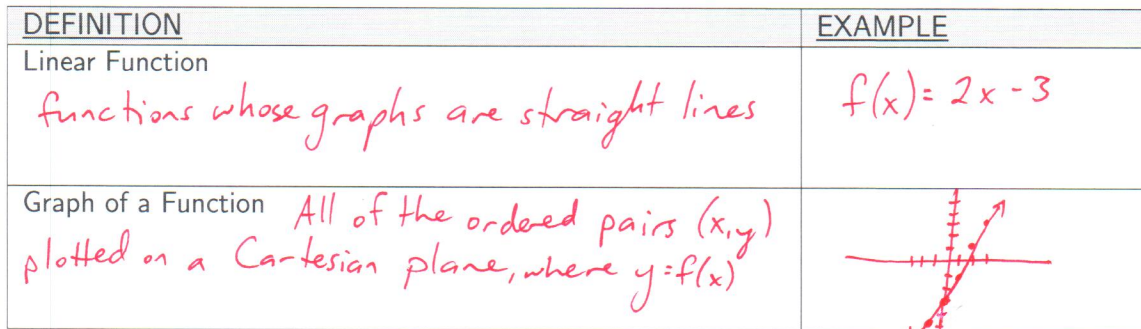 DEFINITION
EXAMPLE
Linear Function
functions whose graphs are straight lines
f(x)= 2x-3
Graph of a Function All of the ordered pairs (x,y)
plotted on a Cartesian plane, where y=f(x)